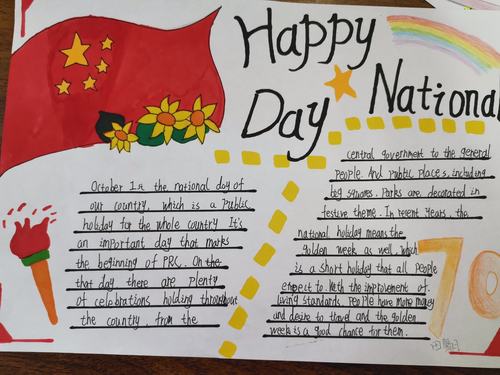 Happy
Day National
October 1st the national day of
our country, which is a public
holiday for the whole country It's
an important day that marks
the beginning of PRC. On the
that day there are plenty
of celebrations holding throughout
the country, from the
central government to the general
people And public places, including
big squares. Parks are decorated in
festive theme. In recent years, the
national holiday means the
golden week as well, which
is a short holiday that all people
expect to. With the improvement of
living standards, people have more money
and desire to travel and the golden
week is a good chance for them.
70